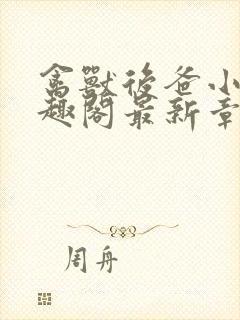 禽獸後爸小
趣閣最新章
周舟